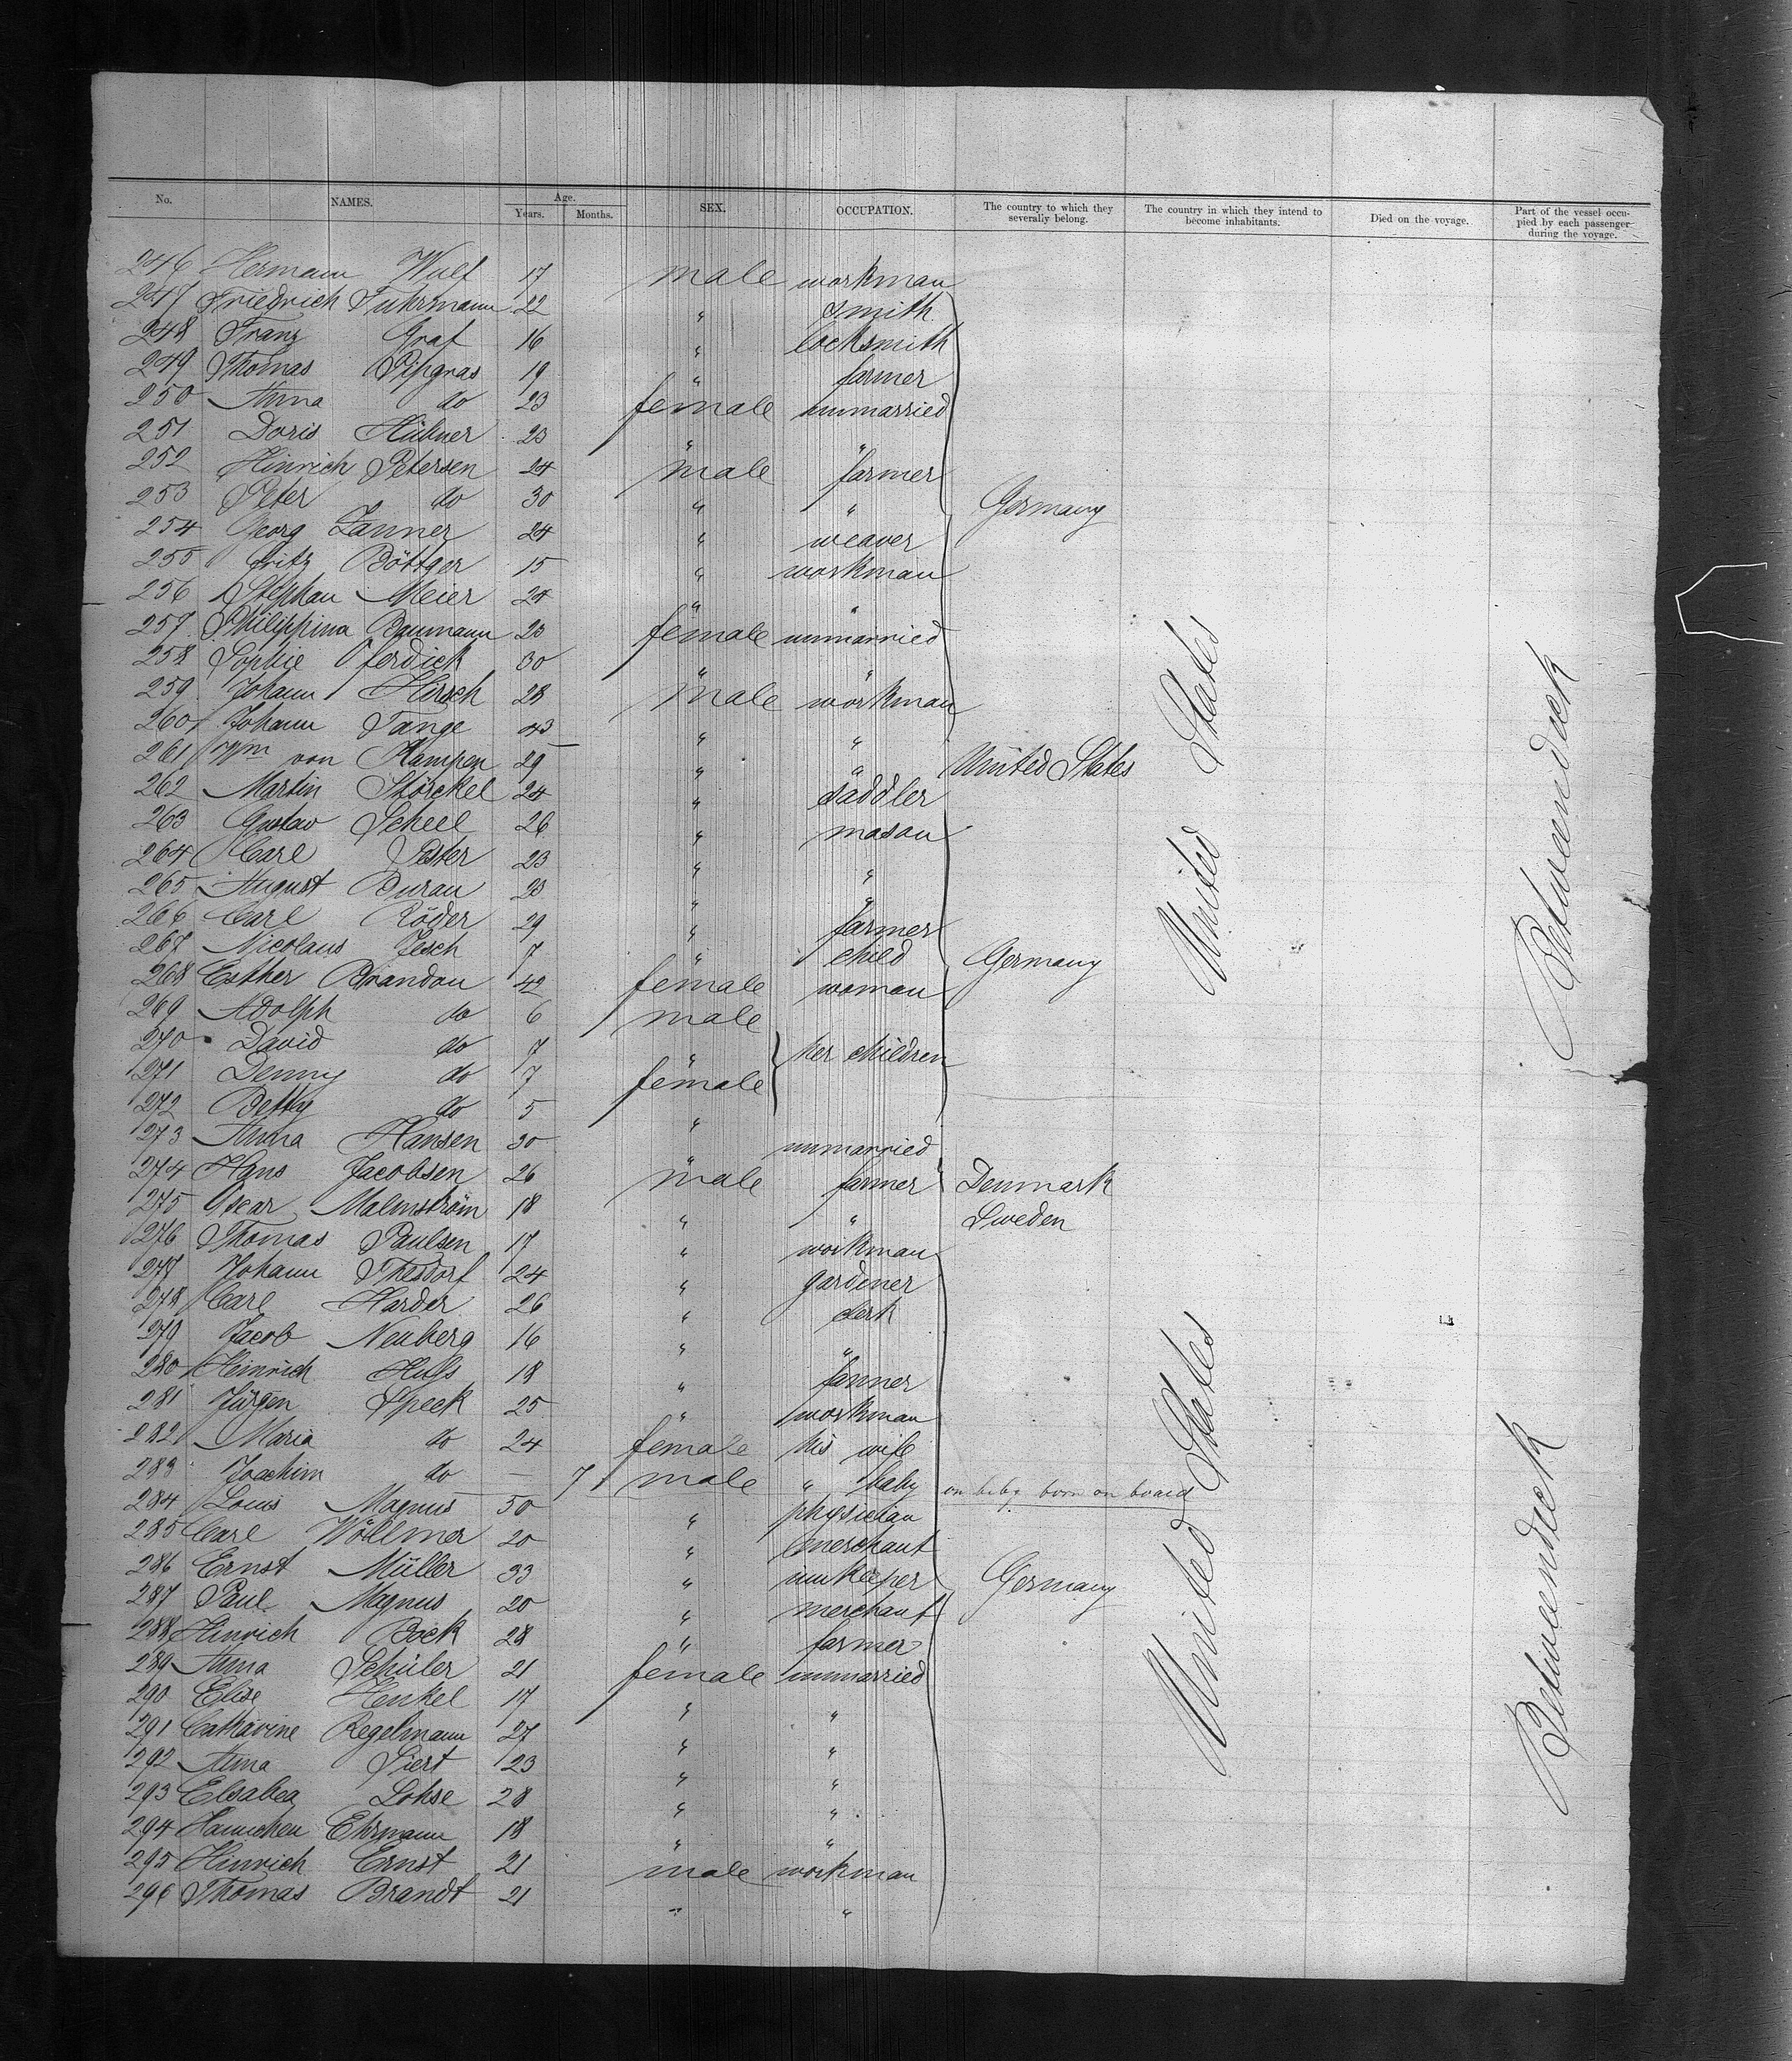 No. NAMES. Age. Years. Months. SEX. OCCUPATION. The country to which they severally belong. The country in which they intend to become inhabitants. Died on the voyage. Part of the vessel occupied by each passenger during the voyage.
246 Hermann Wulf 17 male workman
247 Friedrich Fuhrmann 22 " smith
248 Franz Graf 16 " locksmith
249 Thomas Pipgras 19 " farmer
250 Anna do 23 female unmarried
251 Doris Hübner 23 " "
252 Hinrich Petersen 24 male farmer
253 Peter do 30 " " Germany
254 Georg Lanner 24 " weaver
255 Fritz Böttger 15 " workman
256 Stephan Meier 24 " "
257 Philippina Baumann 23 female unmarried
258 Sophie Oferdick 30 " "
259 Johann Hirsch 28 male workman
260 Johann Tange 43 " "
261 Wm von Kampen 29 " " United States
262 Martin Störckel 24 " saddler
263 Gustav Scheel 26 " mason
264 Carl Pester 23 " "
265 August Burau 23 " "
266 Carl Röder 29 " farmer
267 Nicolaus Jesch 7 " child Germany
268 Esther Brandon 42 female woman
269 Adolph do 6 male
270 David do 7 " her children
271 Denny do 7 female
272 Betty do 5 "
273 Anna Hansen 30 " unmarried
274 Hans Jacobsen 26 male farmer Denmark
275 Oscar Malmström 18 " " Sweden
276 Thomas Paulsen 17 " workman
277 Johann Thesdorf 24 " gardener
278 Carl Harder 26 " clerk
279 Jacob Neuberg 16 " "
280 Heinrich 18 " farmer
281 Jürgen Speck 25 " workman
282 Maria do 24 female his wife
283 Joachim do — 7 male " baby born on board
284 Louis Magnus 50 " physician
285 Carl Wöllmer 20 " merchant
286 Ernst Müller 33 " innkeeper Germany
287 Paul Magnus 20 " merchant
288 Hinrich Bock 28 " farmer
289 Anna Schüler 21 female unmarried
290 Elise Henkel 17 " "
291 Catharine Regelmann 27 " "
292 Anna Siert 23 " "
293 Elsabea Lohse 28 " "
294 Hannchen Ehrmann 18 " "
295 Hinrich Ernst 21 male workman
296 Thomas Brandt 21 " "
United States
United States
Betweendeck
Betweendeck